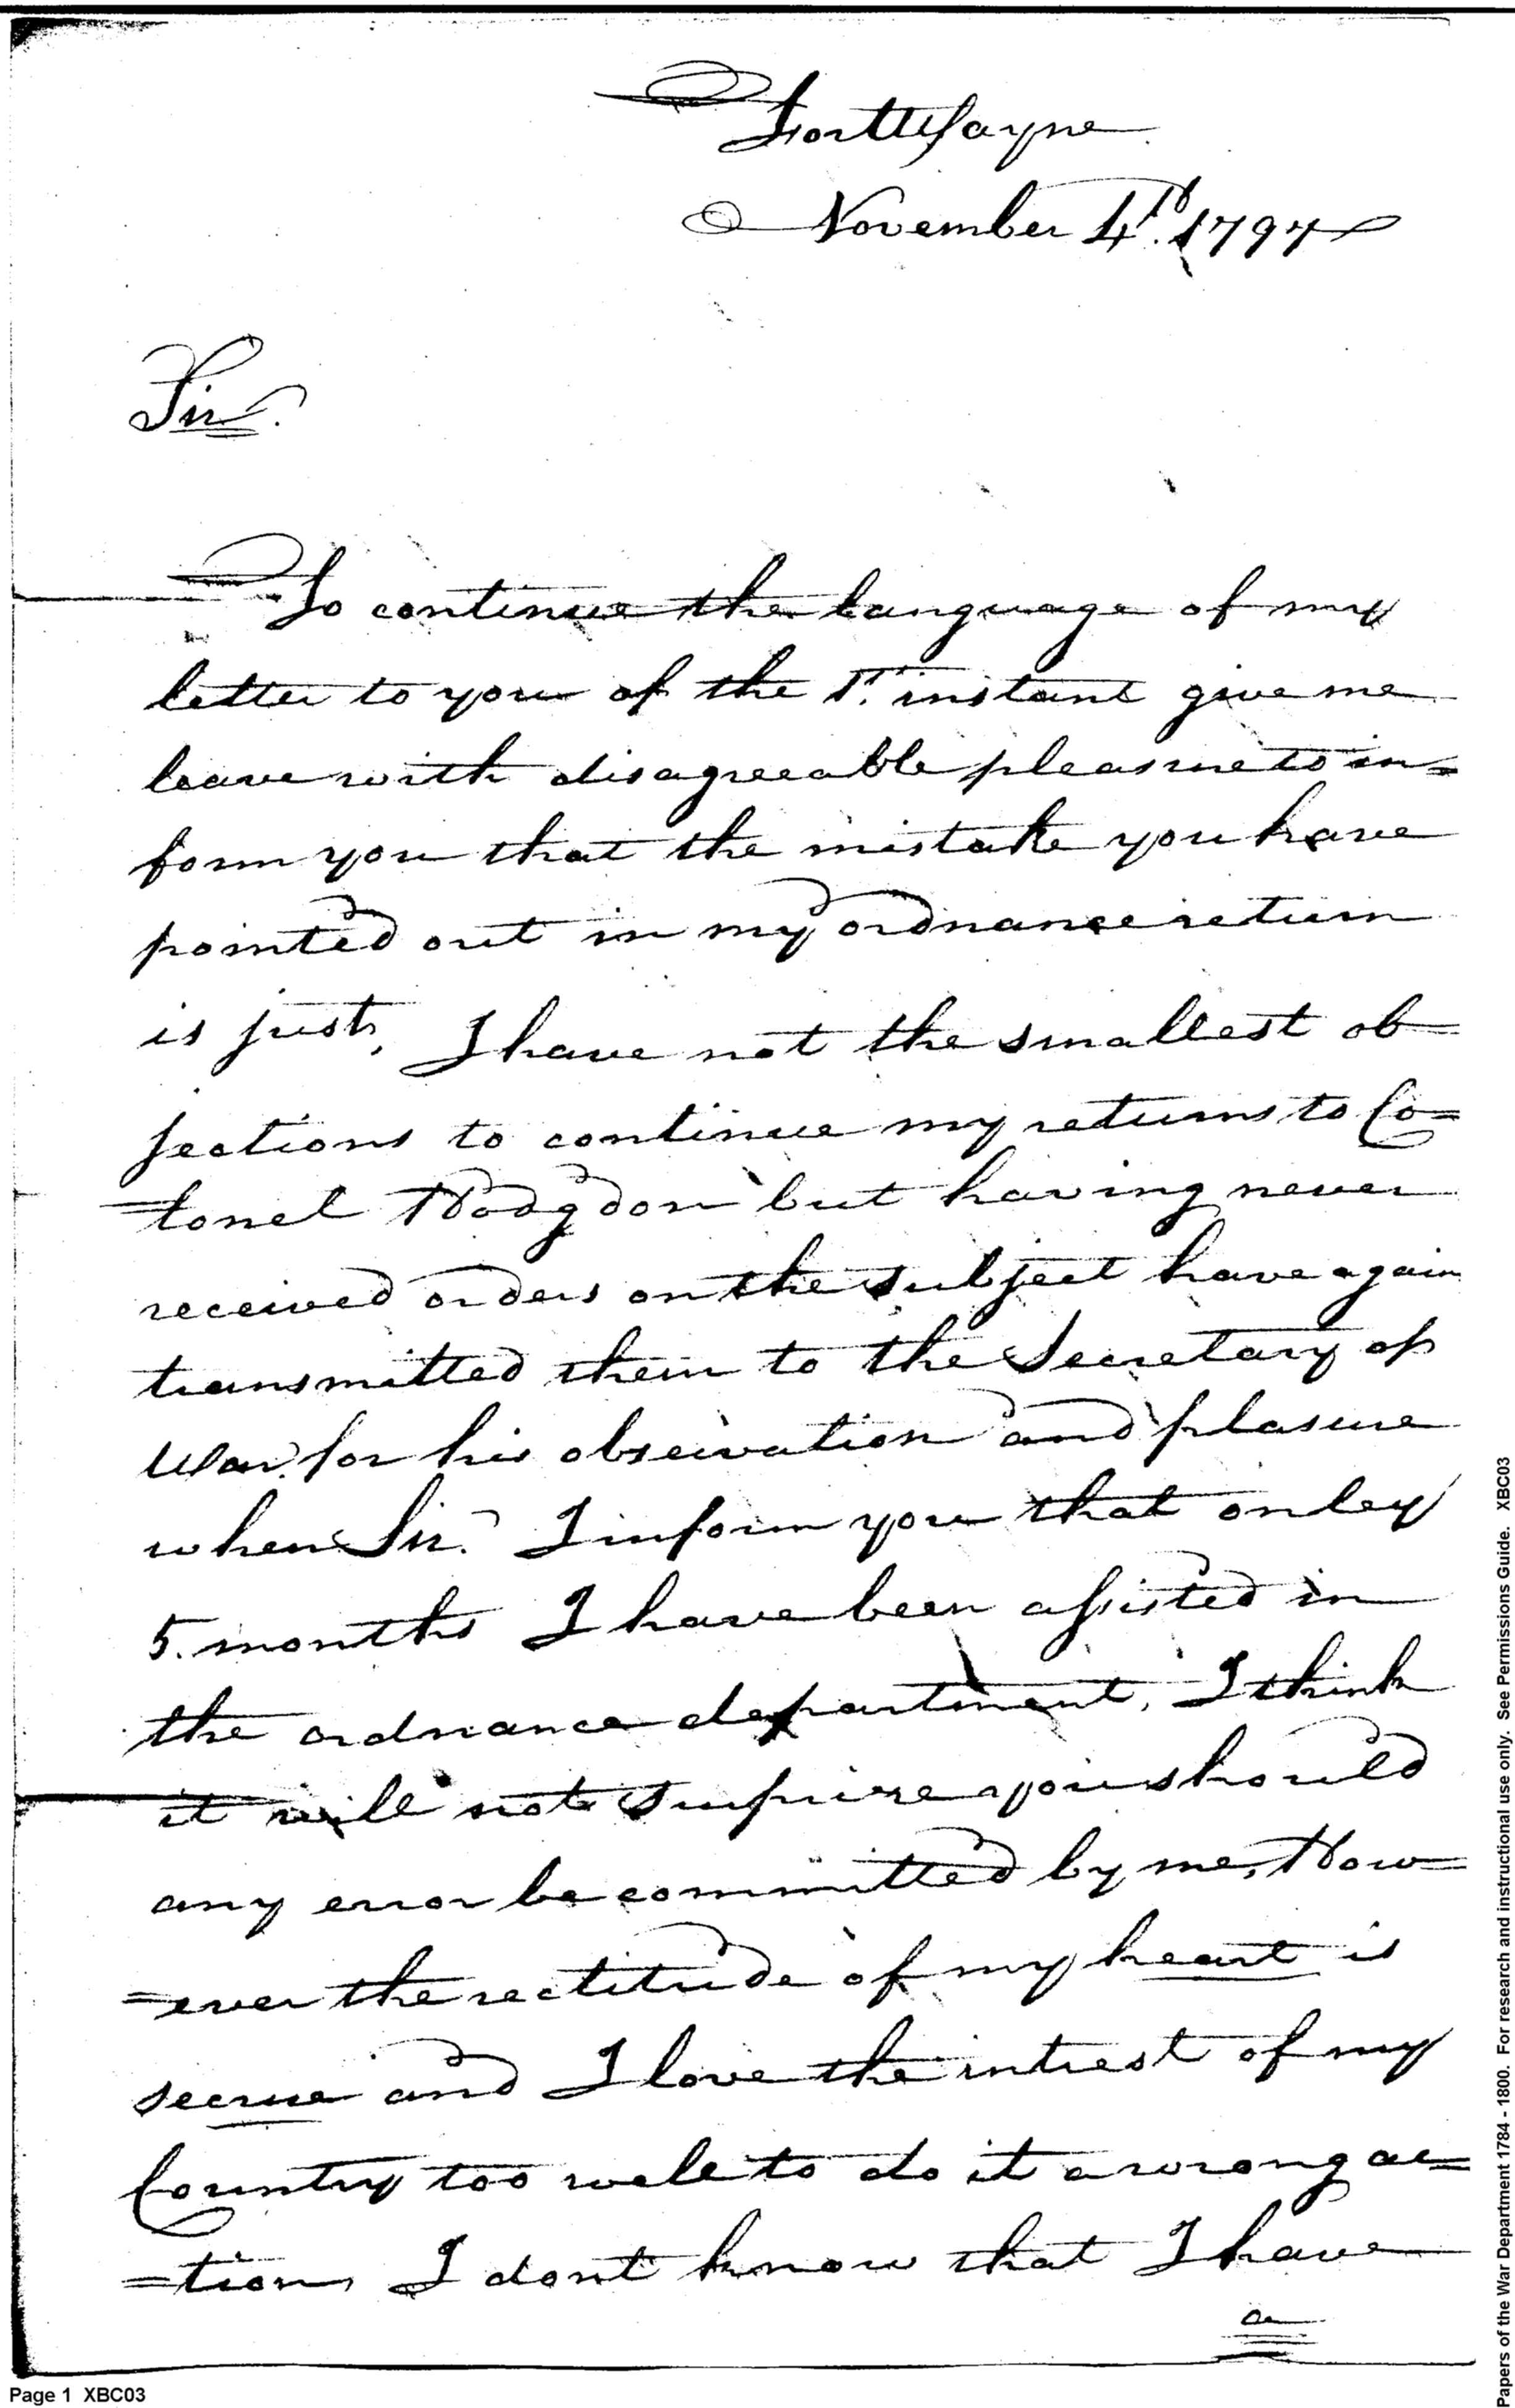 Fort Wayne
November 4th. 1797
Sir.
To continue the language of my
letter to you of the 1st. instant give me
leave with disagreeable pleasure to in=
form you that the mistake you have
pointed out in my ordnance return
is just, I have not the smallest ob=
jections to continue my returns to Co=
=lonel Hodgdon but having never
received orders on the subject have again
transmitted them to the Secretary of
War. for his observation and plasure
when Sir. I inform you that onley
5. months I have been assisted in
the ordnance department, I think
it will not surprise you should
any error be committed by me, How=
=ever the rectitude of my heart is
secure and I love the intrest of my
Country too well to do it a wrong ac=
=tion, I dont know that I have
a
Page 1 XBC03
Papers of the War Department 1784 - 1800. For research and instructional use only. See Permissions Guide. XBC03